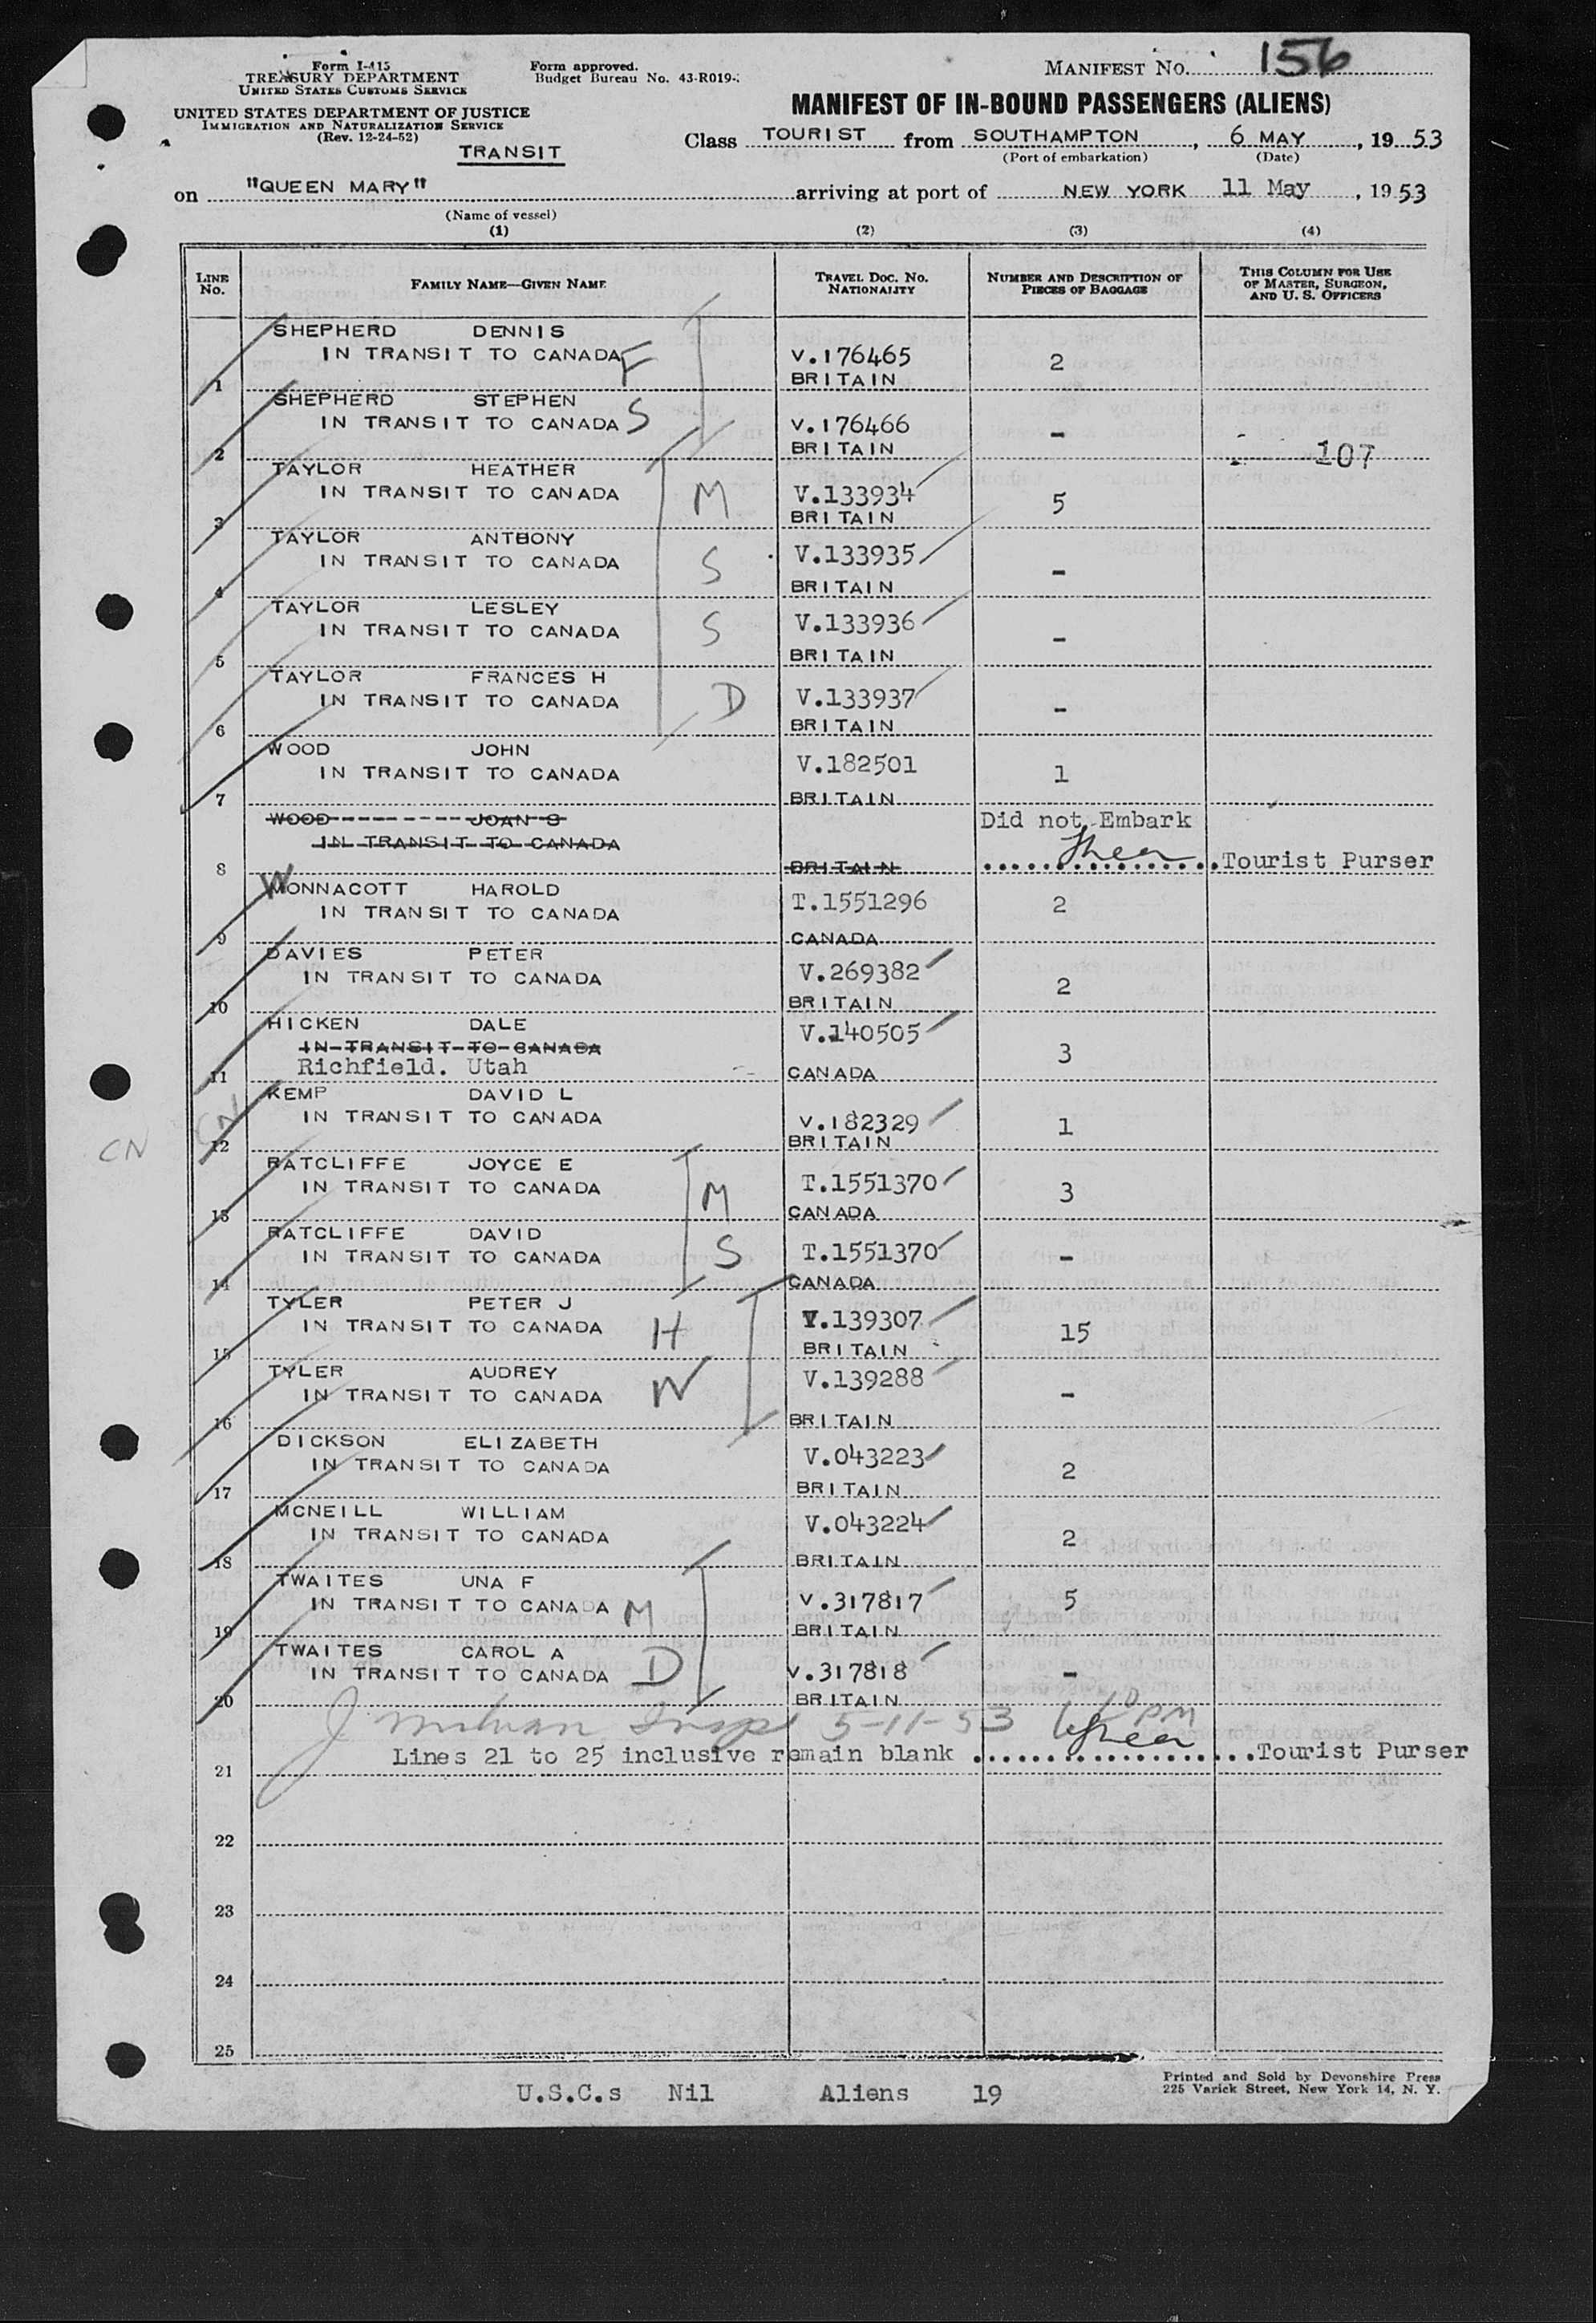 Form I-415
TREASURY DEPARTMENT
UNITED STATES CUSTOMS SERVICE
UNITED STATES DEPARTMENT OF JUSTICE
IMMIGRATION AND NATURALIZATION SERVICE
(Rev. 12-24-52)
TRANSIT
Form approved.
Budget Bureau No. 43-R019-
MANIFEST No. 156
MANIFEST OF IN-BOUND PASSENGERS (ALIENS)
Class TOURIST from SOUTHAMPTON, 6 MAY, 1953
(Port of embarkation) (Date)
on "QUEEN MARY" arriving at port of NEW YORK 11 May, 1953
(Name of vessel)
(1) (2) (3) (4)
LINE No. FAMILY NAME—GIVEN NAME TRAVEL DOC. NO. NATIONALITY NUMBER AND DESCRIPTION OF PIECES OF BAGGAGE THIS COLUMN FOR USE OF MASTER, SURGEON, AND U. S. OFFICERS
SHEPHERD DENNIS
IN TRANSIT TO CANADA F V.176465 2
1 BRITAIN
SHEPHERD STEPHEN
IN TRANSIT TO CANADA S V.176466 -
2 BRITAIN 107
TAYLOR HEATHER
IN TRANSIT TO CANADA M V.133934 5
3 BRITAIN
TAYLOR ANTHONY
IN TRANSIT TO CANADA S V.133935 -
4 BRITAIN
TAYLOR LESLEY
IN TRANSIT TO CANADA S V.133936 -
5 BRITAIN
TAYLOR FRANCES H
IN TRANSIT TO CANADA D V.133937 -
6 BRITAIN
WOOD JOHN
IN TRANSIT TO CANADA V.182501 1
7 BRITAIN
WOOD JOAN S Did not Embark
IN TRANSIT TO CANADA
8 BRITAIN Tourist Purser
WONNACOTT HAROLD
IN TRANSIT TO CANADA T.1551296 2
9 CANADA
DAVIES PETER
IN TRANSIT TO CANADA V.269382 2
10 BRITAIN
HICKEN DALE V.140505
IN TRANSIT TO CANADA 3
Richfield. Utah
11 CANADA
KEMP DAVID L
IN TRANSIT TO CANADA V.182329 1
CN CN 12 BRITAIN
RATCLIFFE JOYCE E
IN TRANSIT TO CANADA M T.1551370 3
13 CANADA
RATCLIFFE DAVID
IN TRANSIT TO CANADA S T.1551370 -
14 CANADA
TYLER PETER J
IN TRANSIT TO CANADA H V.139307 15
15 BRITAIN
TYLER AUDREY
IN TRANSIT TO CANADA W V.139288 -
16 BRITAIN
DICKSON ELIZABETH
IN TRANSIT TO CANADA V.043223 2
17 BRITAIN
MCNEILL WILLIAM
IN TRANSIT TO CANADA V.043224 2
18 BRITAIN
TWAITES UNA F
IN TRANSIT TO CANADA M V.317817 5
19 BRITAIN
TWAITES CAROL A
IN TRANSIT TO CANADA D V.317818 -
20 BRITAIN
Insp 5-11-53 PM
Lines 21 to 25 inclusive remain blank Tourist Purser
21
22
23
24
25
U.S.C.s Nil Aliens 19
Printed and Sold by Devonshire Press
225 Varick Street, New York 14, N. Y.